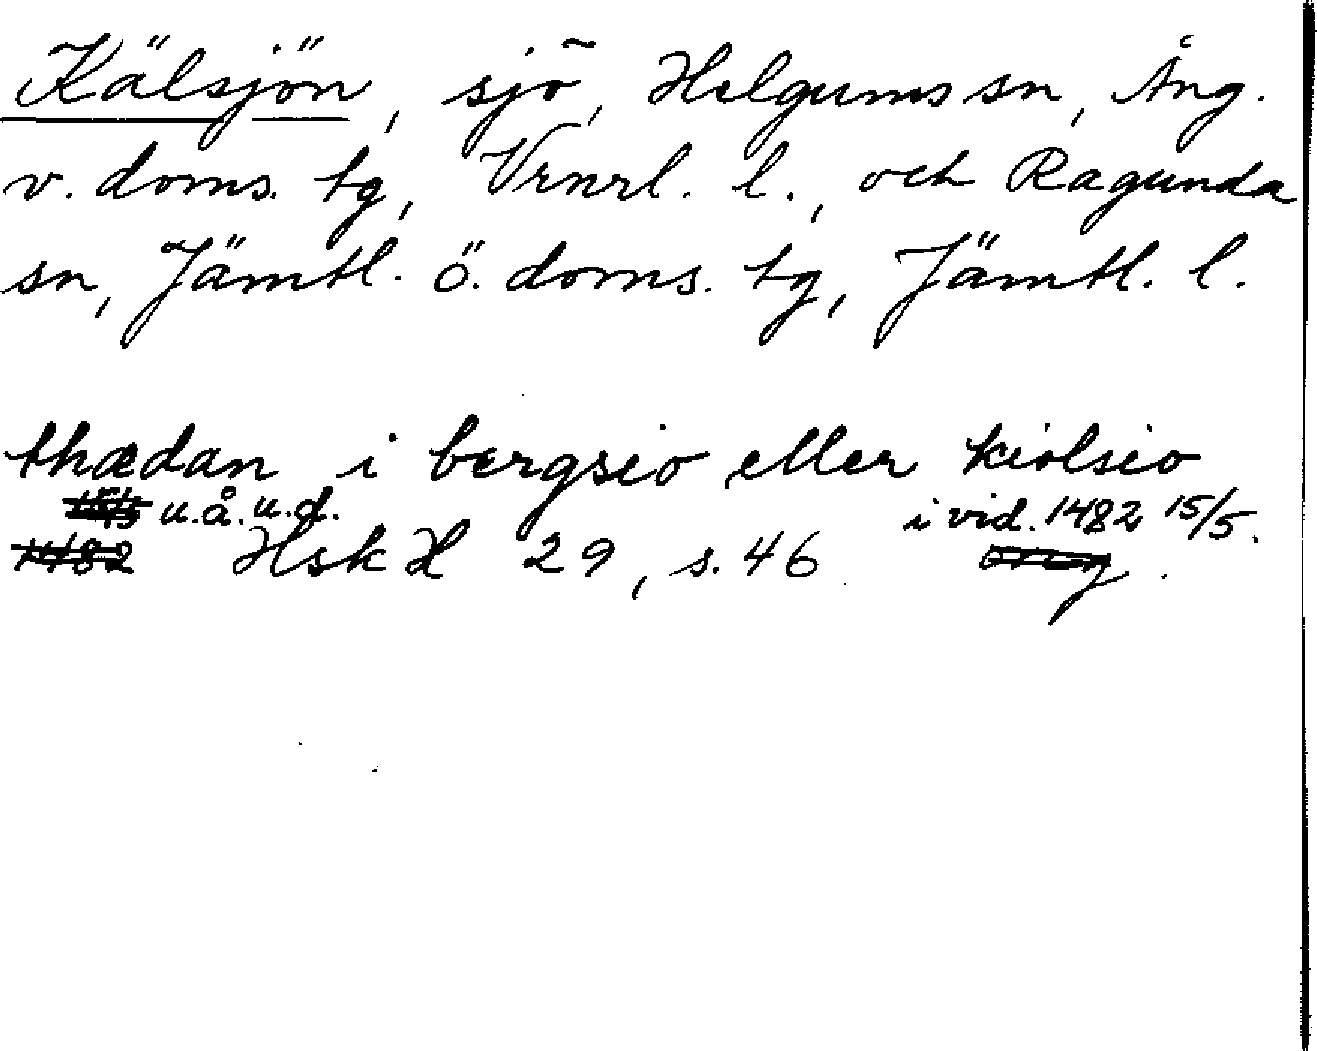 Kälsjön, sjö, Helgums sn, Ång.
v. doms. tg, Vrnrl. l., och Ragunda
sn, Jämtl. ö. doms. tg, Jämtl. l.
thædan i bergsio eller kiölsio
15/5 u.å.u.d. i vid. 1482 15/5.
1482 Hsk H 29, s. 46 orig.